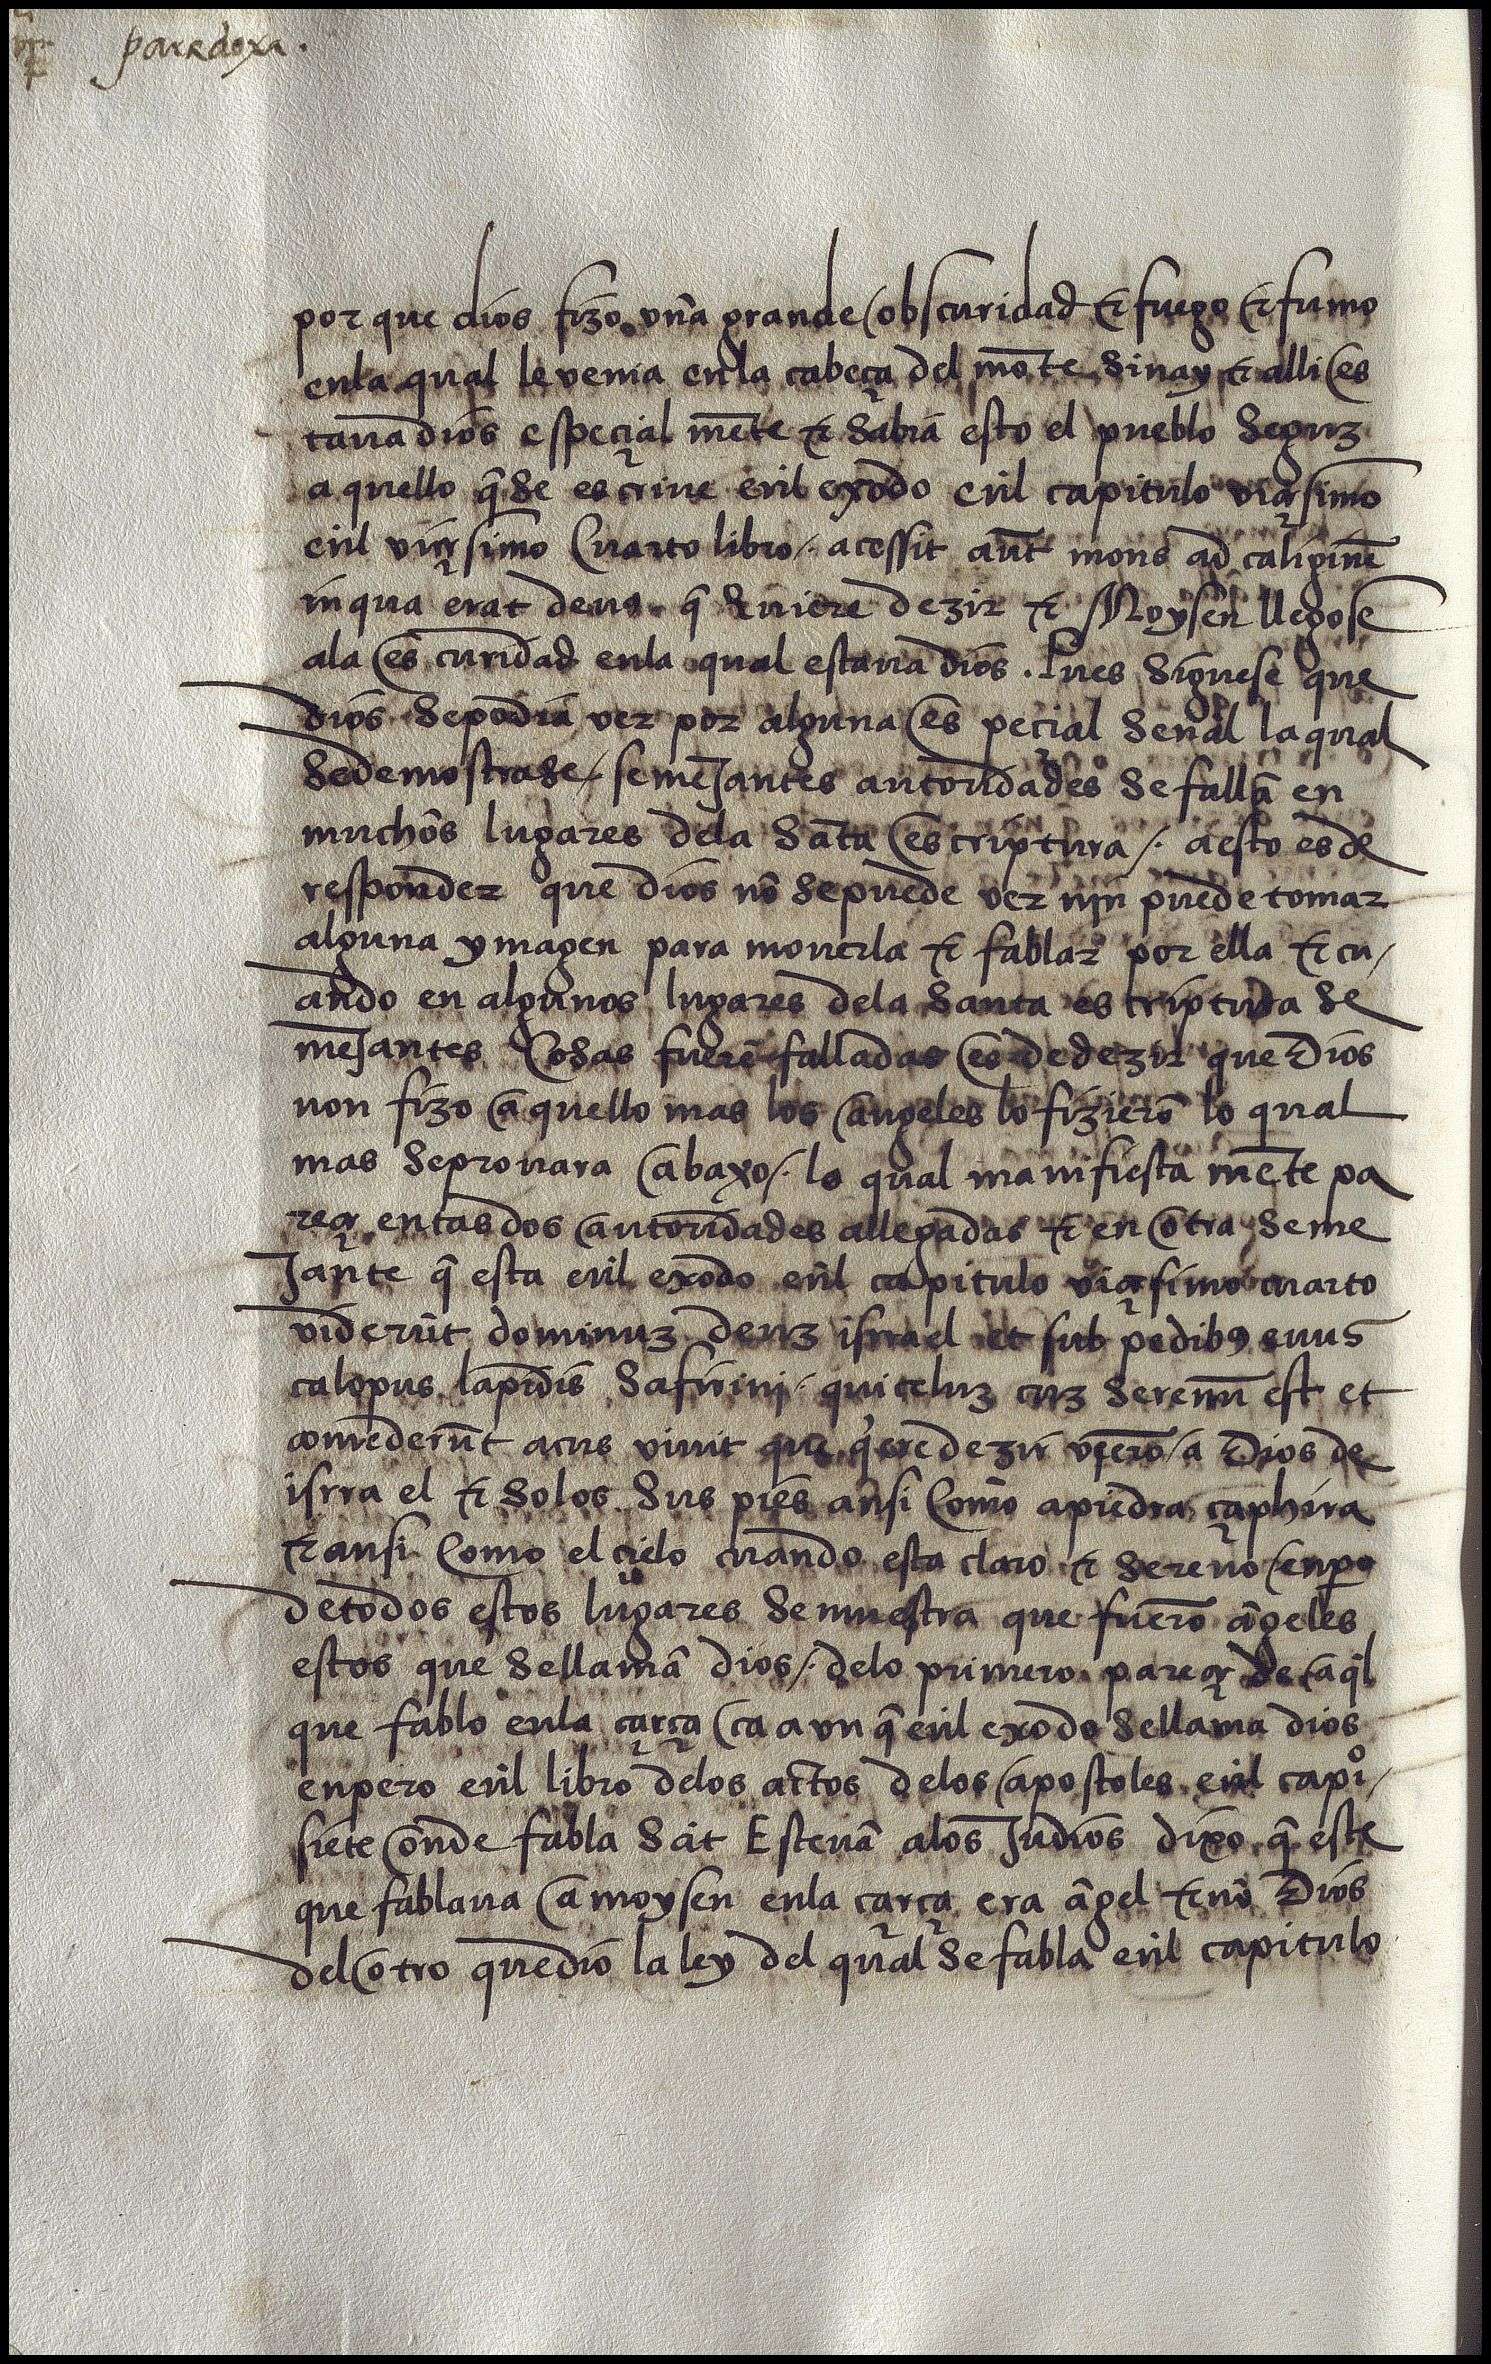 paradoxa.
por que dios fizo vna grande obscuridad & fuego & fumo
enla qual le venia enla cabeça del mõte sinay & alli es
taua dios especial mẽte & sabia esto el pueblo seguz
a quello q̃ se escriue enl exodo enl capitulo
enl quarto libro /. acessit aũt mons ad caliginẽ
in qua erat deus. q̃ quiere dezir & Moysen llegose
ala escuridad enla qual estaua dios. Pues siguese que
dios se podia ver por alguna especial señal la qual
se demostrase / semejantes autoridades se fallã en
muchos lugares dela sãta escriptura /. a esto es de
responder que dios nõ se puede ver nin puede tomar
alguna ymagen para mouerla & fablar por ella & cu/
ando en algunos lugares dela santa escriptura se
mejantes cosas fuerẽ falladas es de dezir que dios
non fizo a quello mas los angeles lo fizierõ lo qual
mas se prouara abaxo /. lo qual manifiesta mẽte pa
reçe en las dos autoridades allegadas & en otra seme
jante q̃ esta enl exodo enl capitulo viçessimo cuarto
viderũt dominuz deuz isrrael et sub pedibꝰ euus
calopus lapidis safirini / qui celuz cuz serenũ est et
comederũt acus viuit que q̃ere dezir vierõ a dios de
isrra el & solos sus pies ansi como a piedra çaphira
& ansi como el çielo cuando esta claro & sereno enpo
de todos estos lugares se muestra que fuerõ ãgeles
estos que se llamã dios /. delo primero pareçe de aq̃l
que fablo enla çarça ca a vn q̃ enl exodo se llama dios
enpero enl libro delos actos delos apostoles enl capiº/
siete onde fabla sãt Esteuã alos judios dixo q̃ este
que fablaua a moysen enla çarça era ãgel & nõ dios
del otro que dio la ley del qual se fabla enl capitulo